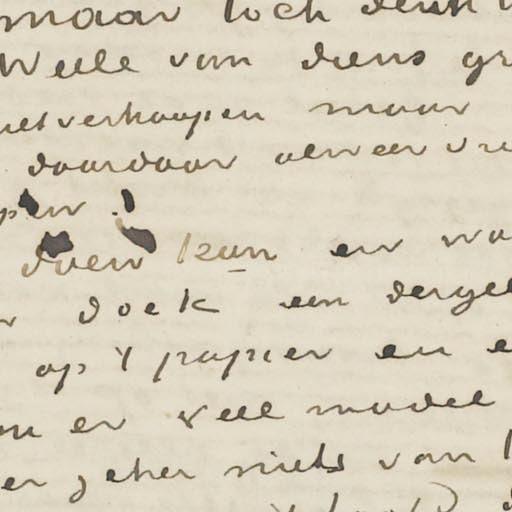 maar toch denk
Weele van diens gr
niet verkoopen maar
daardoor alweer vri
pen.
doen kan en wa
doek een dergel
op 't papier en e
en er veel model
er zeker niets van